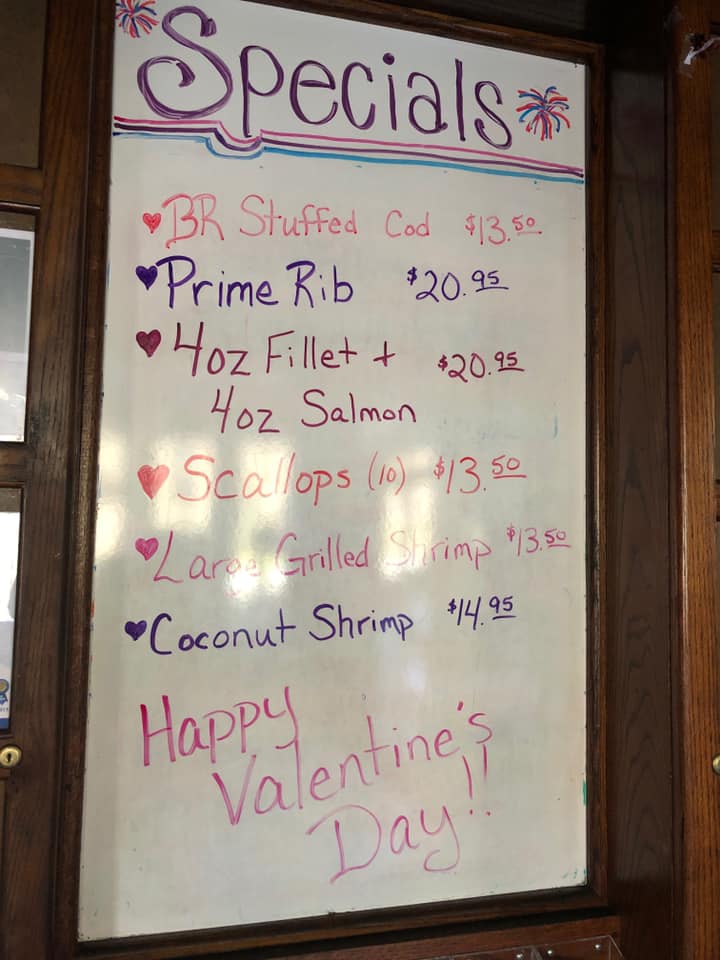 Specials
BR Stuffed Cod $13.50
Prime Rib $20.95
4oz Fillet + $20.95
4oz Salmon
Scallops (10) $13.50
Large Grilled Shrimp $13.50
Coconut Shrimp $14.95
Happy
Valentine's
Day!!